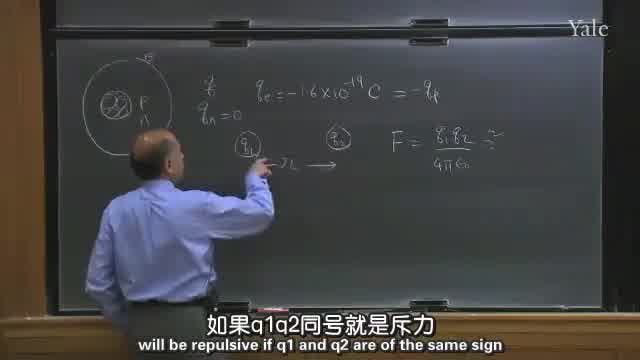 Yale
E
P
n
q
qₑ = -1.6 × 10⁻¹⁹ C = -qₚ
qₙ = 0
q₁
q₂
F = q₁q₂
4πε₀
如果q1q2同号就是斥力
will be repulsive if q1 and q2 are of the same sign